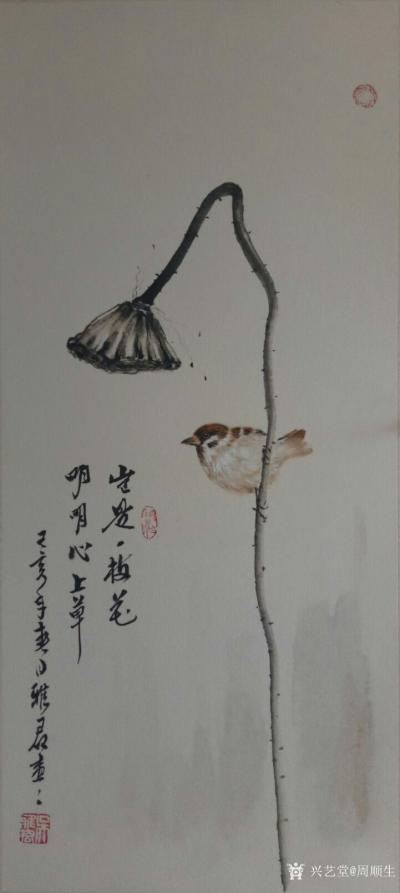 岂是一枝花
明明心上草
己亥年春日雅君画
兴艺堂@周顺生